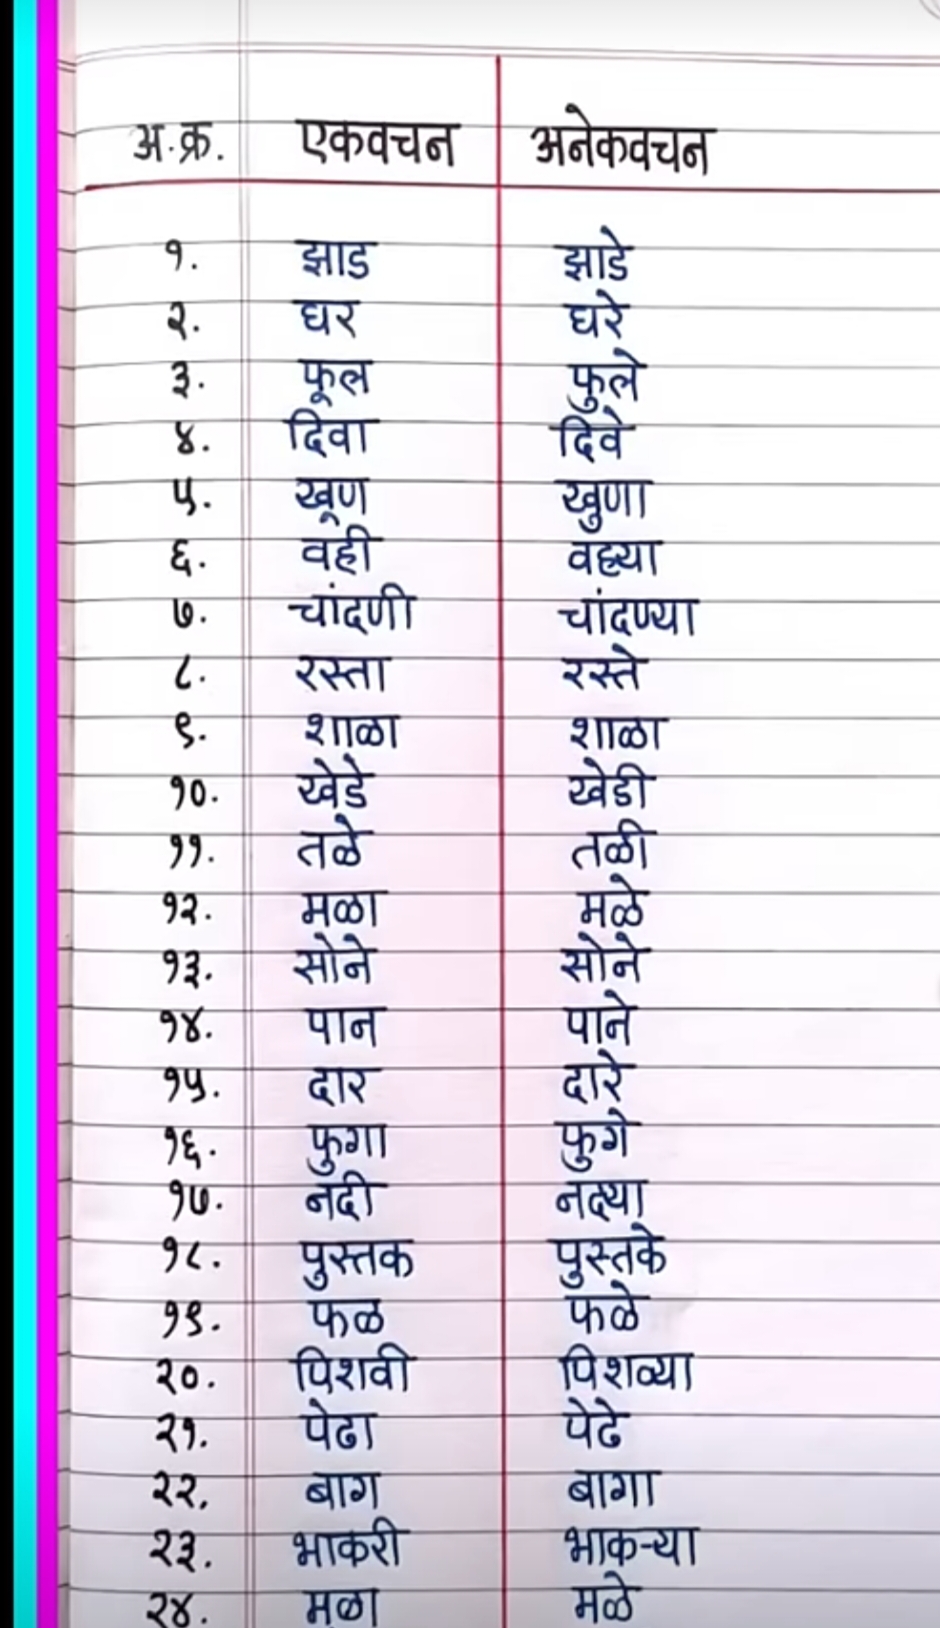 अ.क्र. एकवचन अनेकवचन
१. झाड झाडे
२. घर घरे
३. फूल फुले
४. दिवा दिवे
५. खूण खुणा
६. वही वह्या
७. चांदणी चांदण्या
८. रस्ता रस्ते
९. शाळा शाळा
१०. खेडे खेडी
११. तळे तळी
१२. मळा मळे
१३. सोने सोने
१४. पान पाने
१५. दार दारे
१६. फुगा फुगे
१७. नदी नद्या
१८. पुस्तक पुस्तके
१९. फळ फळे
२०. पिशवी पिशव्या
२१. पेढा पेढे
२२. बाग बागा
२३. भाकरी भाकऱ्या
२४. मळा मळे